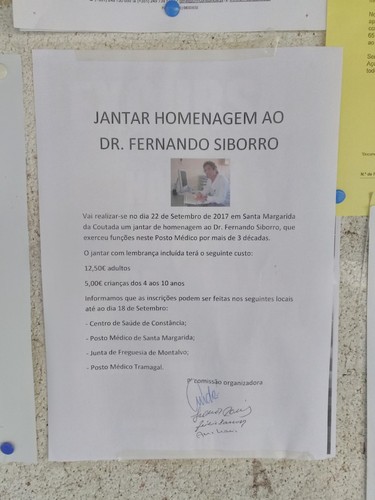 JANTAR HOMENAGEM AO
DR. FERNANDO SIBORRO
Vai realizar-se no dia 22 de Setembro de 2017 em Santa Margarida
da Coutada um jantar de homenagem ao Dr. Fernando Siborro, que
exerceu funções neste Posto Médico por mais de 3 décadas.
O jantar com lembrança incluída terá o seguinte custo:
12,50€ adultos
5,00€ crianças dos 4 aos 10 anos
Informamos que as inscrições podem ser feitas nos seguintes locais
até ao dia 18 de Setembro:
- Centro de Saúde de Constância;
- Posto Médico de Santa Margarida;
- Junta de Freguesia de Montalvo;
- Posto Médico Tramagal.
comissão organizadora